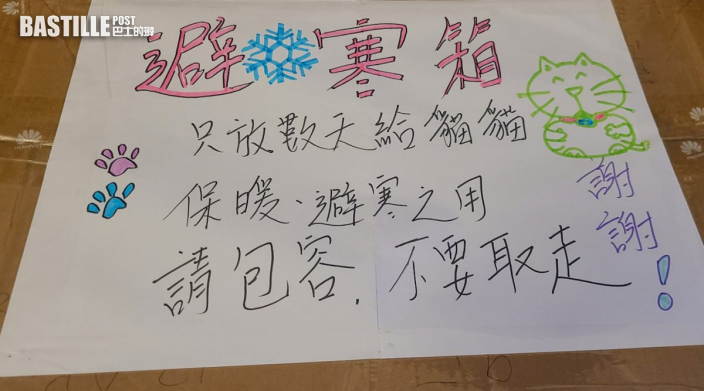 BASTILLE POST
巴士的報
避寒箱
只放數天給貓貓
保暖、避寒之用
請包容，不要取走
謝謝！
HUAWEI
HUAWEI